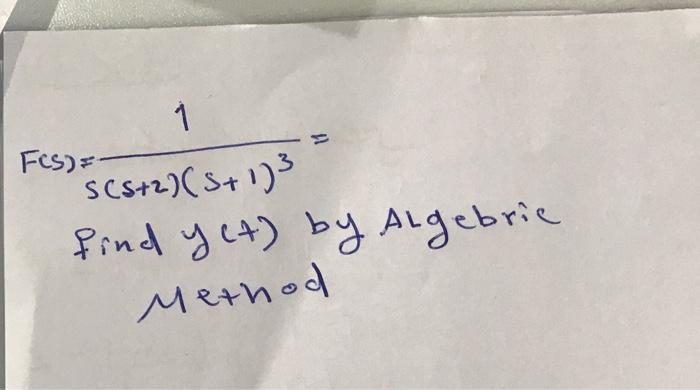 F(s) = 1 / s(s+2)(s+1)³ =
find y(t) by ALgebric
Method